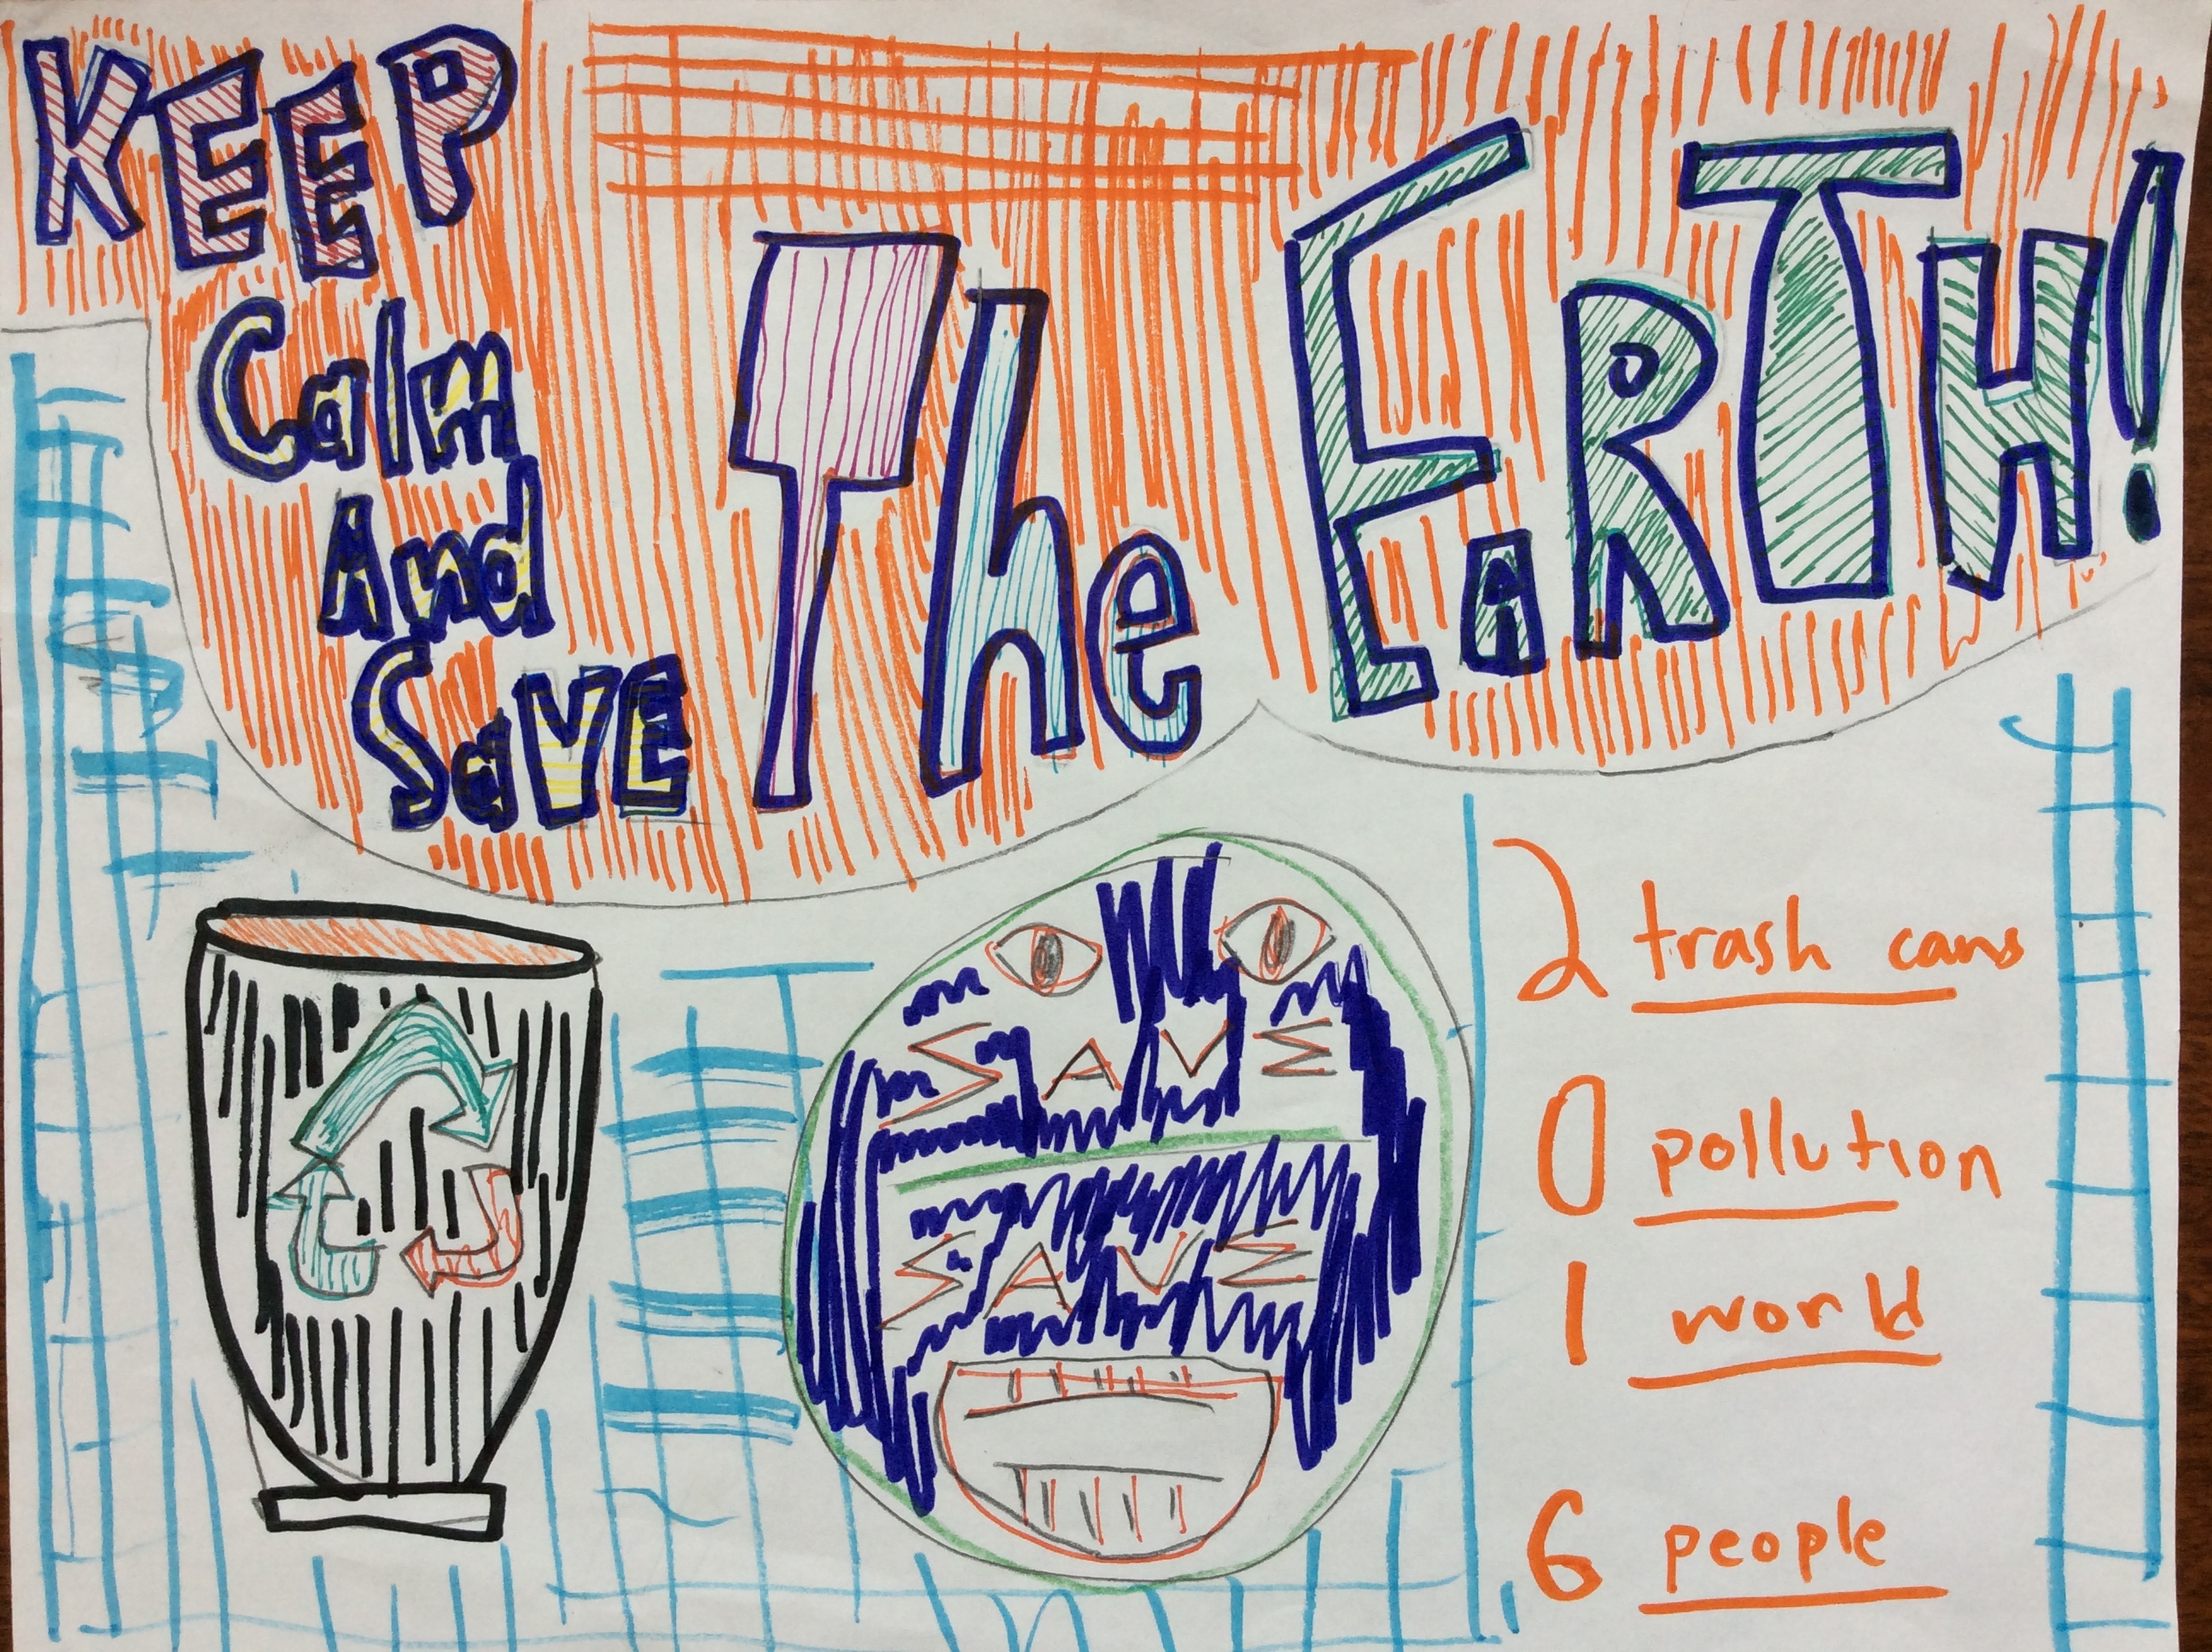 KEEP
Calm
And
SaVE
The
EaRTH!
SAVE
SAVE
2 trash cans
0 pollution
1 world
6 people